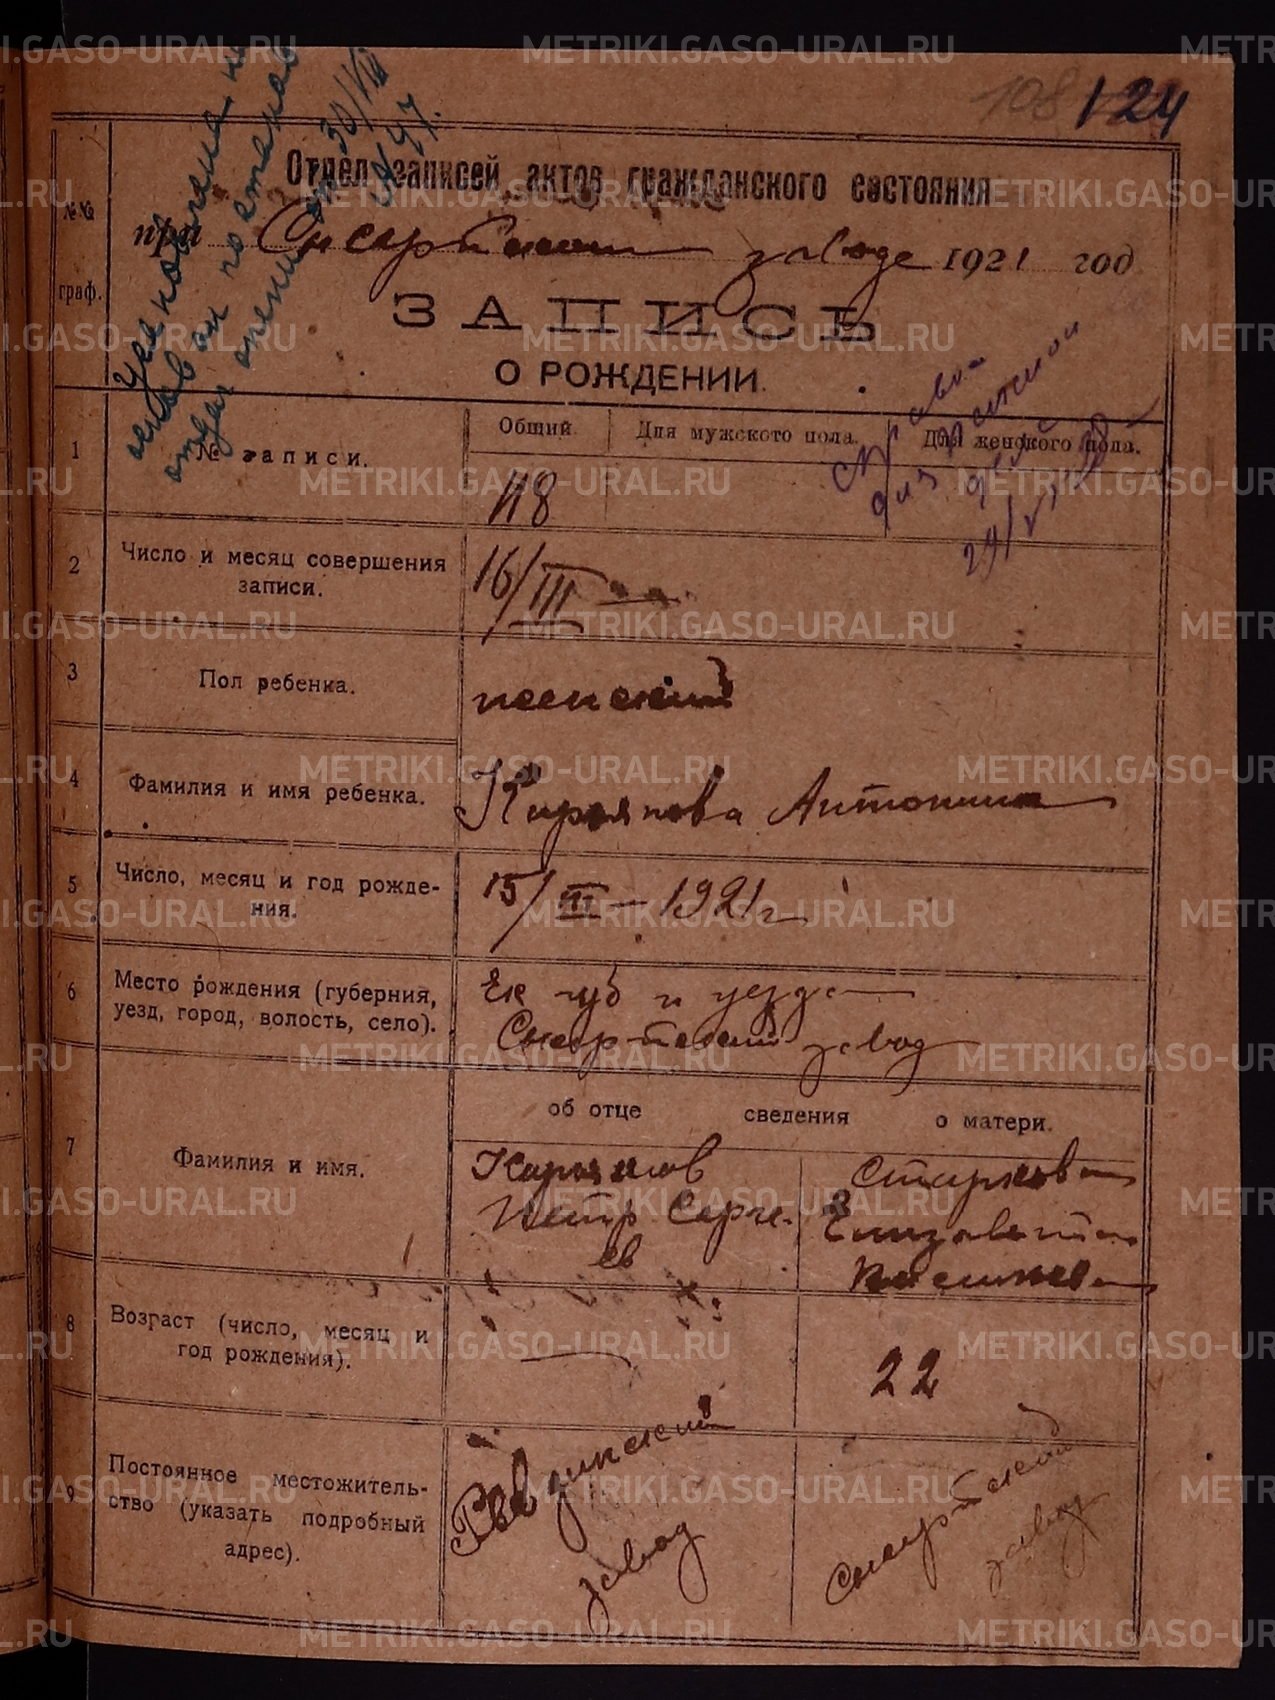 108 124
Отдел записей актов гражданского состояния
№№ граф.
при Сысертском заводе 1921 год
ЗАПИСЬ
О РОЖДЕНИИ.
от 30/VIII
47.
Справка
29/V
1 № записи. Общий. Для мужского пола. Для женского пола.
118
2 Число и месяц совершения
записи.
16/III
3 Пол ребенка. женский
4 Фамилия и имя ребенка. Кирьянова Антонина
5 Число, месяц и год рожде-
ния.
15/III – 1921 г
6 Место рождения (губерния,
уезд, город, волость, село).
Ек губ и уезда
Сысертский завод
об отце сведения о матери.
7 Фамилия и имя.
Кирьянов
Петр Серге-
ев
Старкова
Елизавета
8 Возраст (число, месяц и
год рождения).
— 22
9 Постоянное местожитель-
ство (указать подробный
адрес).
Ревдинский
завод
Сысертский
завод
METRIKI.GASO-URAL.RU